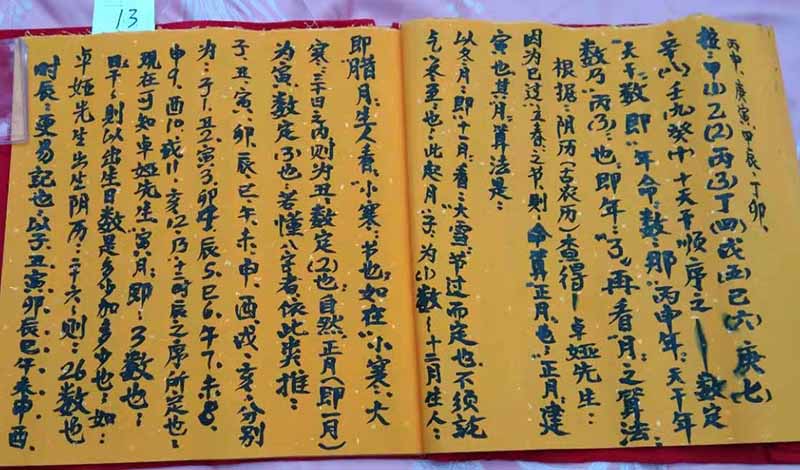 13
丙申、庚寅、甲辰、丁卯、
按:甲(一)乙(2)丙(3)丁(四)戊(五)己(六)庚(七)
辛(八)壬(九)癸(十)十天干顺序之一数定
"天干"数即"年命"数:那"丙申年"天干年
数乃"丙(3)"也:即年:"3"再看"月"之算法:
根据:阴历(古农历)查得一卓娅先生:
因为已过"立春"之节则:命算"正月"也:"正月"建
寅也其"月"算法是:
以冬月:即"十一月"看:"大雪"节过而定也不须就
气"冬至"也:此起月"子"为(一)数:十二月生人:
即"腊月"生人看:"小寒"节也:如在"小寒、大
寒:三十日之内则为丑:数定(2)也:自然正月(即一月)
为寅"数定(3)也:若懂八字者依此类推:
子、丑、寅、卯、辰、巳、午、未、申、酉、戌、亥、分别
为:子1、丑2、寅3、卯4、辰5、巳6、午7、未8、
申9、酉10、戌11、亥12乃:十二时辰之序所定也:
现在可知卓娅先生"寅"月:即:3数也:
日干:则以出生日数是多少加多少也:如:
卓娅先生出生阴历:二十六:则:26数也
时辰:更易记也:以子丑、寅、卯辰巳午未申酉、